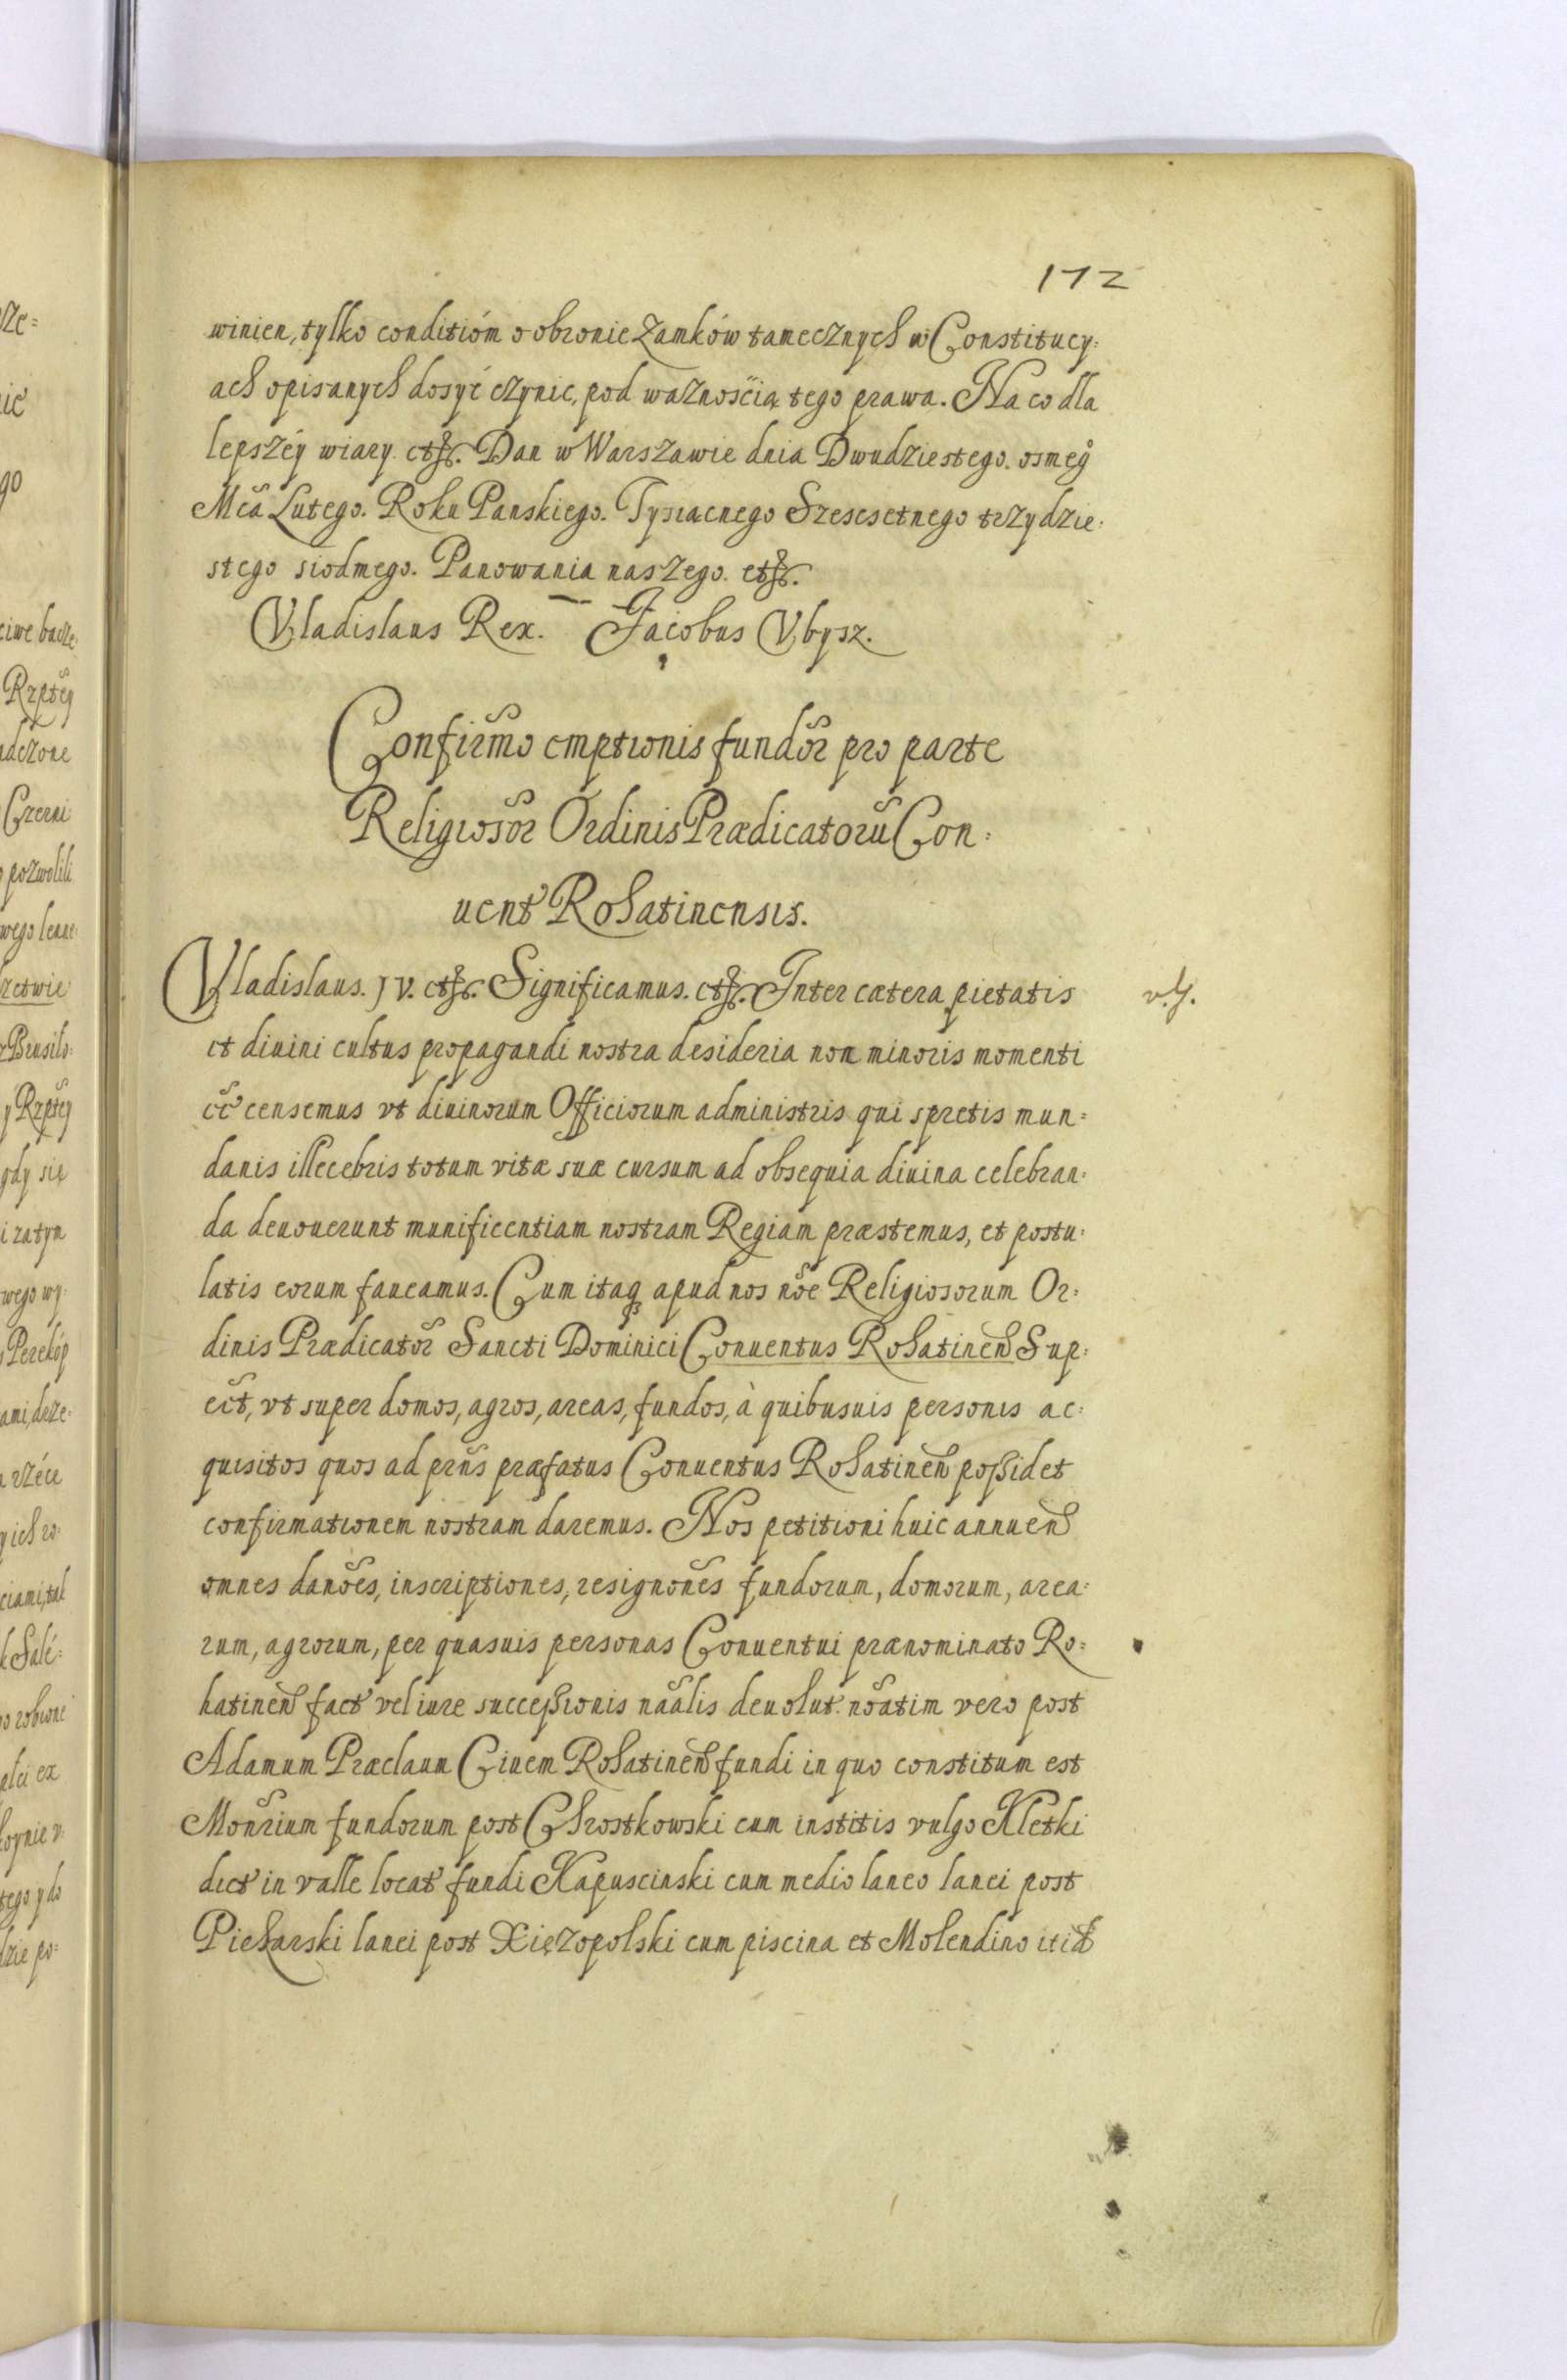 172
winien, tylko conditióm o obronie Zamków tamecznych w Constitucy:
ach opisanych dosyć czynic, pod waznością tego prawa. Na co dla
lepszéy wiary. etc. Dan w Warszawie dnia Dwudziestego. osmego
Mca Lutego. Roku Panskiego. Tysiącnego Szescsetnego trzydzie:
stego siodmego. Panowania naszego. etc.
Vladislaus Rex. Jacobus Vbysz.
Confirmo emptionis fundor pro parte
Religiosor Ordinis Prædicatorũ Con:
uent Rohatinensis.
Vladislaus. IV. etc. Significamus. etc. Inter cætera pietatis
v. g.
et diuini cultus propagandi nostra desideria non minoris momenti
censemus vt diuinorum Officiorum administris qui spretis mun:
danis illecebris totum vitæ suæ cursum ad obsequia diuina celebran:
da deuouerunt munificentiam nostram Regiam præstemus, et postu:
latis eorum faueamus. Cum itaq apud nos nõe Religiosorum Or:
dinis Prædicator Sancti Dominici Conuentus Rohatinen Sup:
ect, vt super domos, agros, areas, fundos, à quibusuis personis ac:
quisitos quos ad prns præfatus Conuentus Rohatinen possidet
confirmationem nostram daremus. Nos petitioni huic annuen
omnes danões, inscriptiones, resignões fundorum, domorum, area:
rum, agrorum, per quasuis personas Conuentui prænominato Ro:
hatinen fact vel iure successionis nãalis deuolut. nõatim vero post
Adamum Præclaum Ciuem Rohatinen fundi in quo constitum est
Monrium fundorum post Chrostkowski cum institis vulgo Kletki
dict in valle locat fundi Kapuscinski cum medio laneo lanei post
Piekarski lanei post Xięzopolski cum piscina et Molendino itid